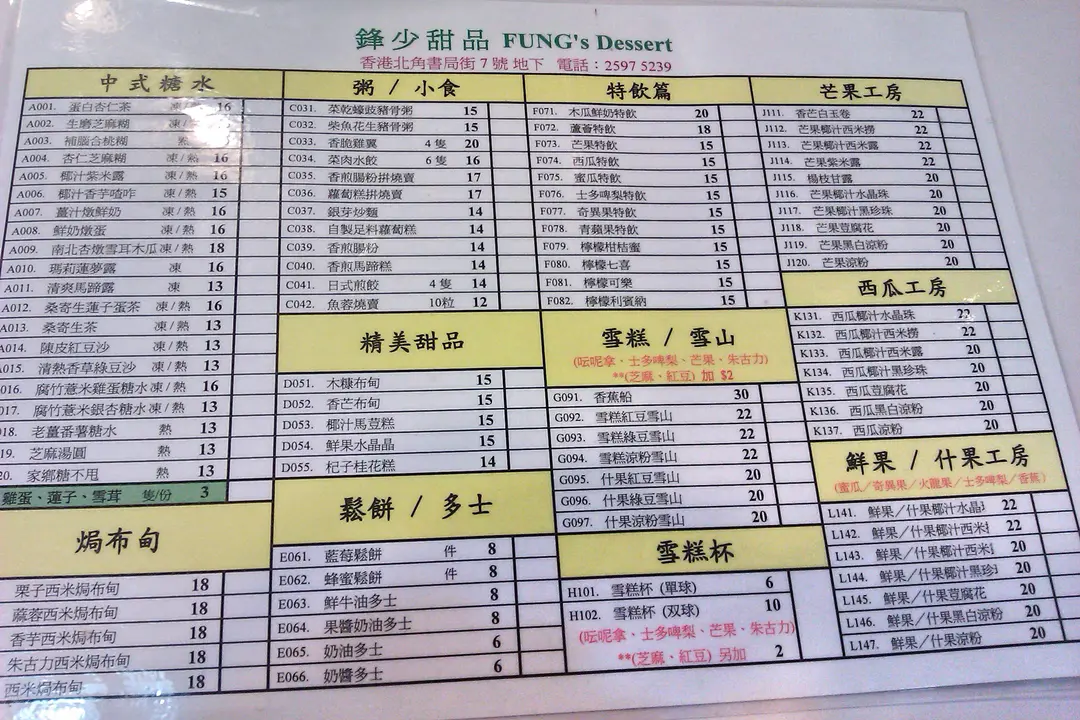 鋒少甜品 FUNG's Dessert
香港北角書局街7號地下 電話：2597 5239
中式糖水
A001. 蛋白杏仁茶 凍/ 16
A002. 生磨芝麻糊 凍/
A003. 補腦合桃糊 熱
A004. 杏仁芝麻糊 凍/熱 16
A005. 椰汁紫米露 凍/熱 16
A006. 椰汁香芋喳咋 凍/熱 15
A007. 薑汁燉鮮奶 凍/熱 16
A008. 鮮奶燉蛋 凍/熱 16
A009. 南北杏燉雪耳木瓜 凍/熱 18
A010. 瑪莉蓮夢露 凍 16
A011. 清爽馬蹄露 凍 13
A012. 桑寄生蓮子蛋茶 凍/熱 16
A013. 桑寄生茶 凍/熱 13
A014. 陳皮紅豆沙 凍/熱 13
A015. 清熱香草綠豆沙 凍/熱 13
016. 腐竹薏米雞蛋糖水 凍/熱 16
017. 腐竹薏米銀杏糖水 凍/熱 13
018. 老薑番薯糖水 熱 13
19. 芝麻湯圓 熱 13
20. 家鄉糖不甩 熱 13
雞蛋、蓮子、雪茸 隻/份 3
焗布甸
栗子西米焗布甸 18
蔴蓉西米焗布甸 18
香芋西米焗布甸 18
朱古力西米焗布甸 18
西米焗布甸 18
粥 / 小食
C031. 菜乾蠔豉豬骨粥 15
C032. 柴魚花生豬骨粥 15
C033. 香脆雞翼 4隻 20
C034. 菜肉水餃 6隻 16
C035. 香煎腸粉拼燒賣 17
C036. 蘿蔔糕拼燒賣 17
C037. 銀芽炒麵 14
C038. 自製足料蘿蔔糕 14
C039. 香煎腸粉 14
C040. 香煎馬蹄糕 14
C041. 日式煎餃 4隻 14
C042. 魚蓉燒賣 10粒 12
精美甜品
D051. 木糠布甸 15
D052. 香芒布甸 15
D053. 椰汁馬荳糕 15
D054. 鮮果水晶晶 15
D055. 杞子桂花糕 14
鬆餅 / 多士
E061. 藍莓鬆餅 件 8
E062. 蜂蜜鬆餅 件 8
E063. 鮮牛油多士 8
E064. 果醬奶油多士 8
E065. 奶油多士 6
E066. 奶醬多士 6
特飲篇
F071. 木瓜鮮奶特飲 20
F072. 蘆薈特飲 18
F073. 芒果特飲 15
F074. 西瓜特飲 15
F075. 蜜瓜特飲 15
F076. 士多啤梨特飲 15
F077. 奇異果特飲 15
F078. 青蘋果特飲 15
F079. 檸檬柑桔蜜 15
F080. 檸檬七喜 15
F081. 檸檬可樂 15
F082. 檸檬利賓納 15
雪糕 / 雪山
(呍呢拿、士多啤梨、芒果、朱古力)
**(芝麻、紅豆) 加 $2
G091. 香蕉船 30
G092. 雪糕紅豆雪山 22
G093. 雪糕綠豆雪山 22
G094. 雪糕涼粉雪山 22
G095. 什果紅豆雪山 20
G096. 什果綠豆雪山 20
G097. 什果涼粉雪山 20
雪糕杯
H101. 雪糕杯 (單球) 6
H102. 雪糕杯 (双球) 10
(呍呢拿、士多啤梨、芒果、朱古力)
**(芝麻、紅豆) 另加 2
芒果工房
J111. 香芒白玉卷 22
J112. 芒果椰汁西米撈 22
J113. 芒果椰汁西米露 22
J114. 芒果紫米露 22
J115. 楊枝甘露 20
J116. 芒果椰汁水晶珠 20
J117. 芒果椰汁黑珍珠 20
J118. 芒果荳腐花 20
J119. 芒果黑白涼粉 20
J120. 芒果涼粉 20
西瓜工房
K131. 西瓜椰汁水晶珠 22
K132. 西瓜椰汁西米撈 22
K133. 西瓜椰汁西米露 22
K134. 西瓜椰汁黑珍珠 20
K135. 西瓜荳腐花 20
K136. 西瓜黑白涼粉 20
K137. 西瓜涼粉 20
鮮果 / 什果工房
(蜜瓜／奇異果／火龍果／士多啤梨／香蕉)
L141. 鮮果／什果椰汁水晶 22
L142. 鮮果／什果椰汁西米 22
L143. 鮮果／什果椰汁西米 20
L144. 鮮果／什果椰汁黑珍 20
L145. 鮮果／什果荳腐花 20
L146. 鮮果／什果黑白涼粉 20
L147. 鮮果／什果涼粉 20